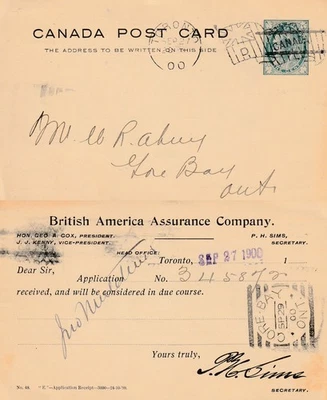 CANADA POST CARD
THE ADDRESS TO BE WRITTEN ON THIS SIDE
TORONTO
00
CANADA
W. R.
Gore Bay
Ont.
British America Assurance Company.
HON. GEO. A. COX, PRESIDENT.
J. J. KENNY, VICE-PRESIDENT.
P. H. SIMS,
SECRETARY.
HEAD OFFICE:
Toronto, SEP 27 1900 1
Dear Sir,
Application No. 345872
received, and will be considered in due course.
GORE BAY
SP 29
00
ONT
Yours truly,
P. H. Sims
SECRETARY.